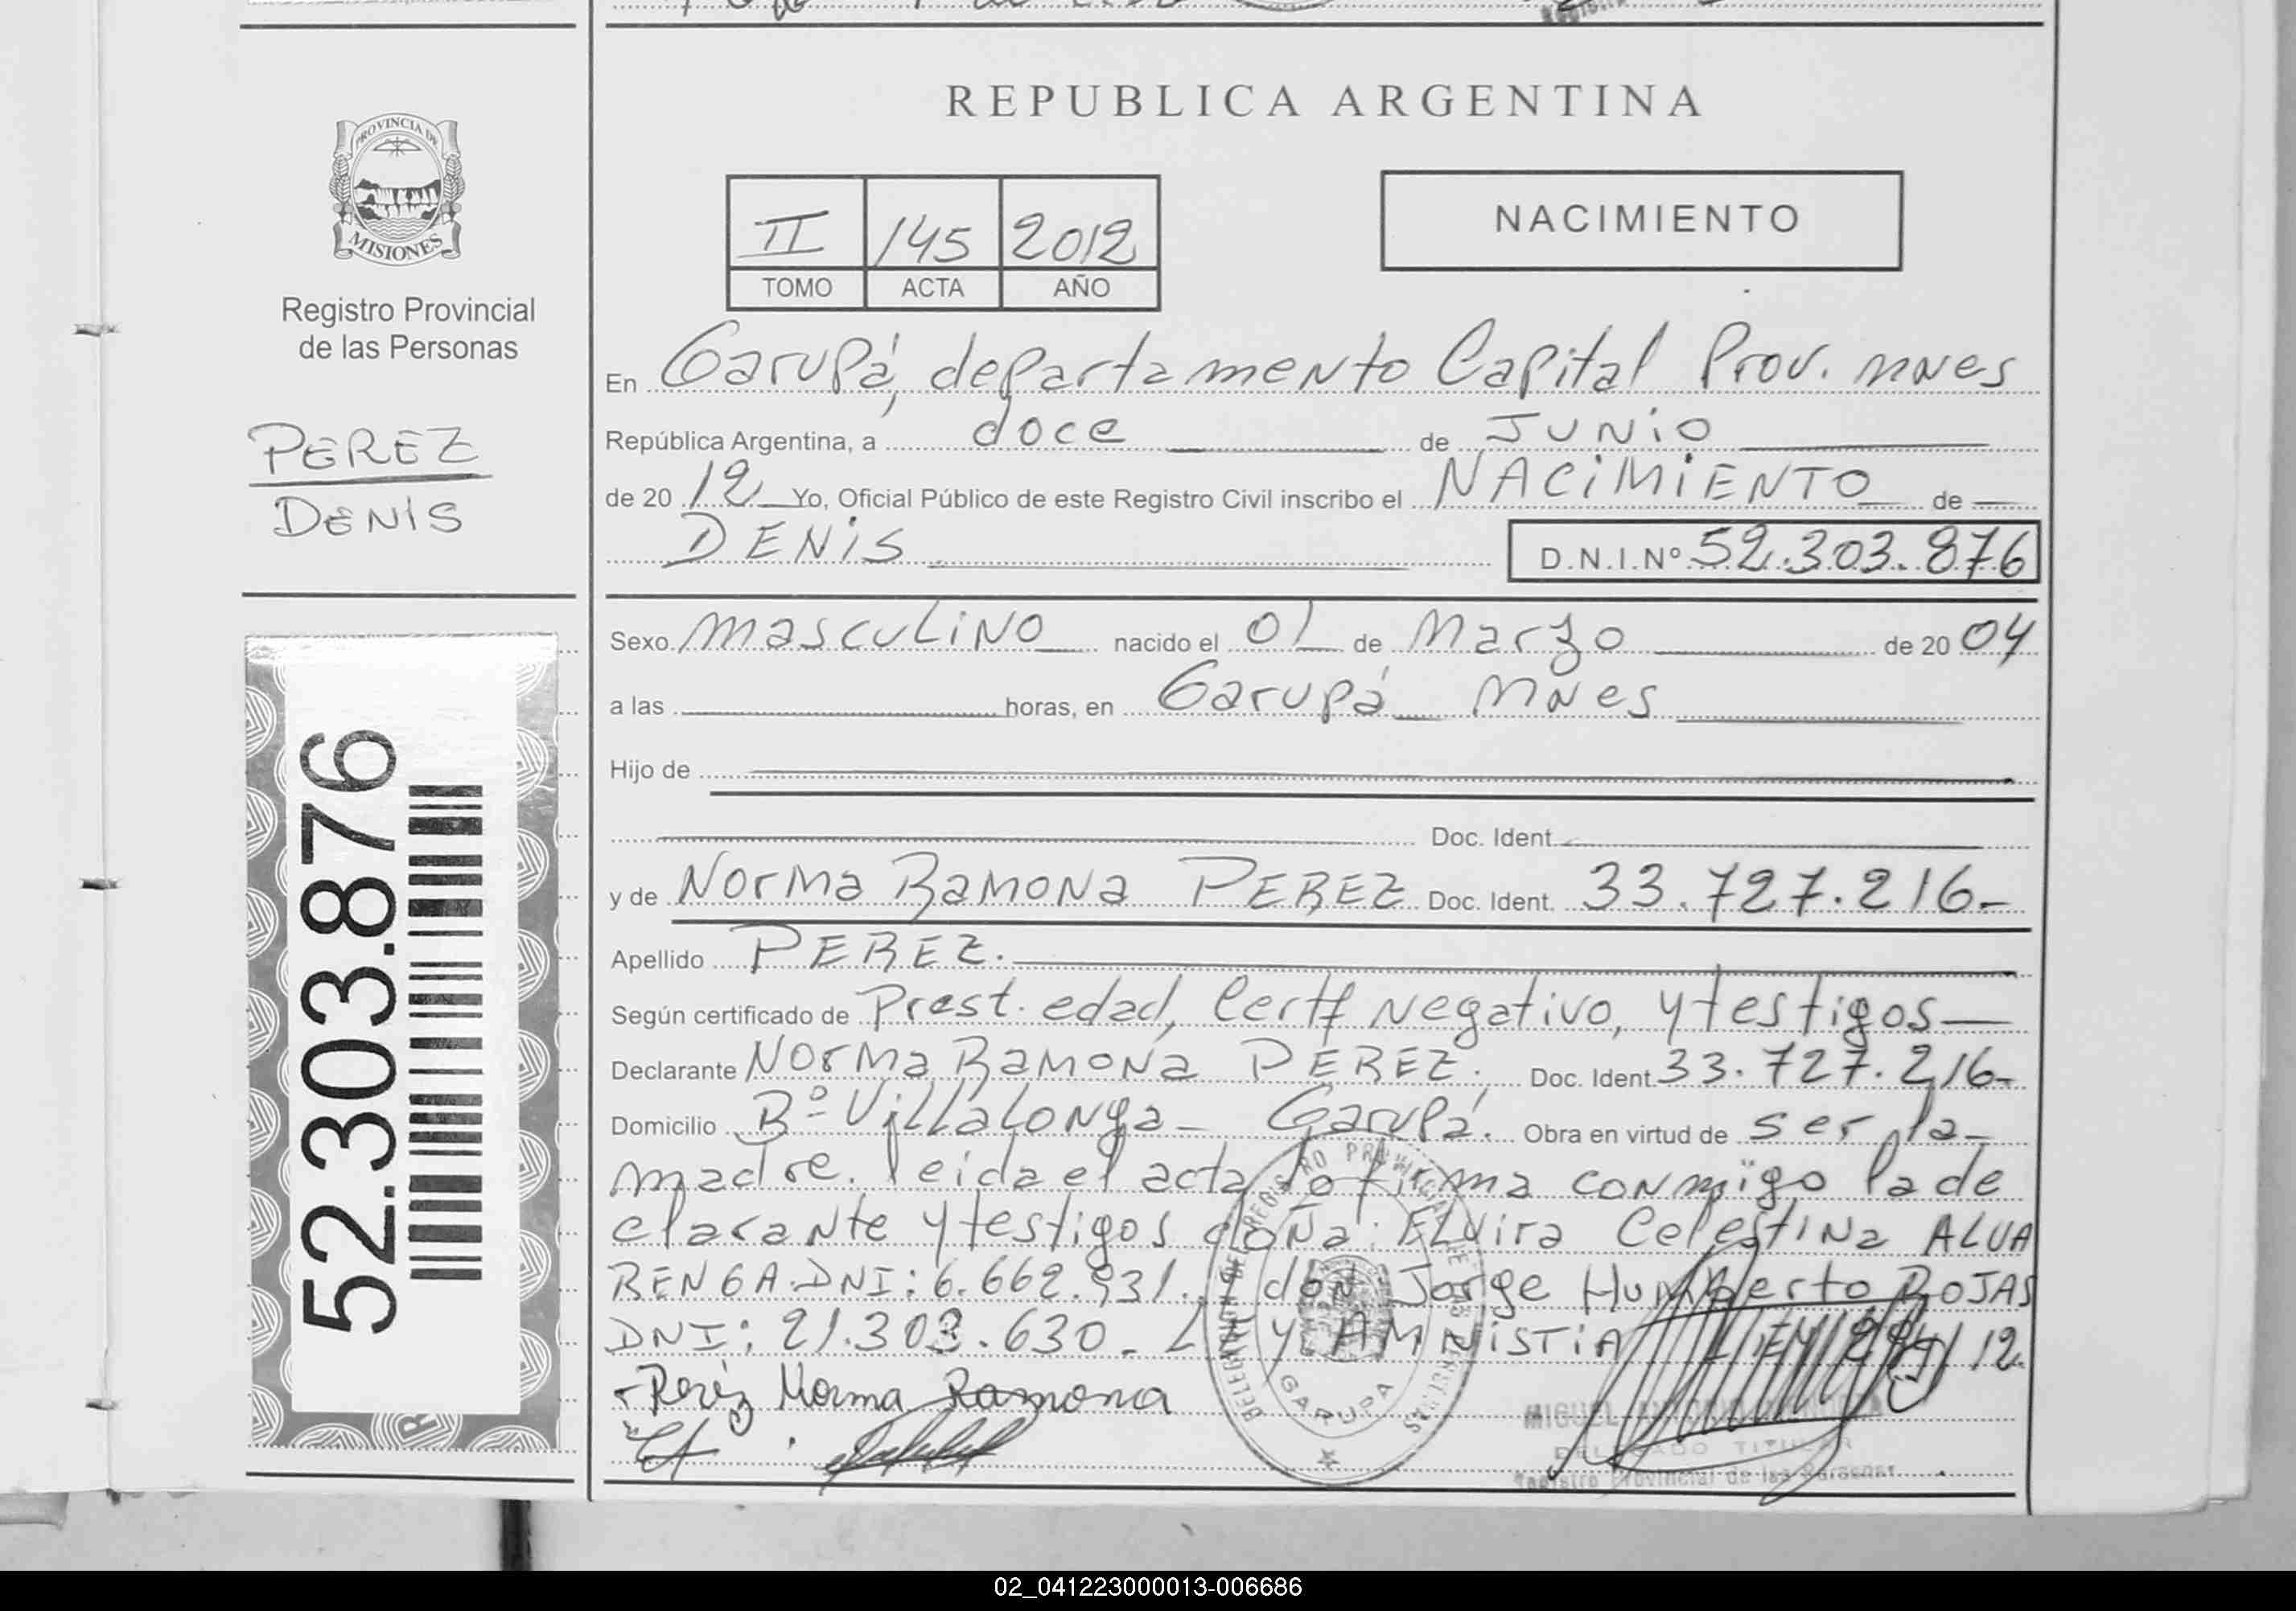 REPUBLICA ARGENTINA
PROVINCIA DE
MISIONES
Registro Provincial
de las Personas
PEREZ
DENIS
52.303.876
II 145 2012
TOMO ACTA AÑO
NACIMIENTO
En Garupá, departamento Capital Prov. mnes
República Argentina, a doce de JUNiO
de 20 12 Yo, Oficial Público de este Registro Civil inscribo el NACiMiENTO de
DENiS D.N.I.Nº 52.303.876
Sexo masculiNo nacido el 01 de Marzo de 20 04
a las horas, en Garupá MNes
Hijo de
Doc. Ident.
y de Norma Ramona PEREZ Doc. Ident. 33.727.216-
Apellido PEREZ.
Según certificado de Prest. edad, Certf Negativo, y testigos
Declarante Norma Ramona PEREZ. Doc. Ident. 33.727.216-
Domicilio Bº Villalonga - Garupá. Obra en virtud de ser la
madre. leida el acta lo firma conmigo la de
clarante y testigos doña: Elvira Celestina ALVA
RENGA. DNI: 6.662.931. don Jorge Humberto ROJAS
DNI: 21.303.630. LEY AMNISTIA
12.
Peréz Norma Ramona
DELEGACION DEL REGISTRO PROVINCIAL DE LAS PERSONAS
GARUPA
MIGUEL
DELEGADO TITULAR
Registro Provincial de las Personas
02_041223000013-006686